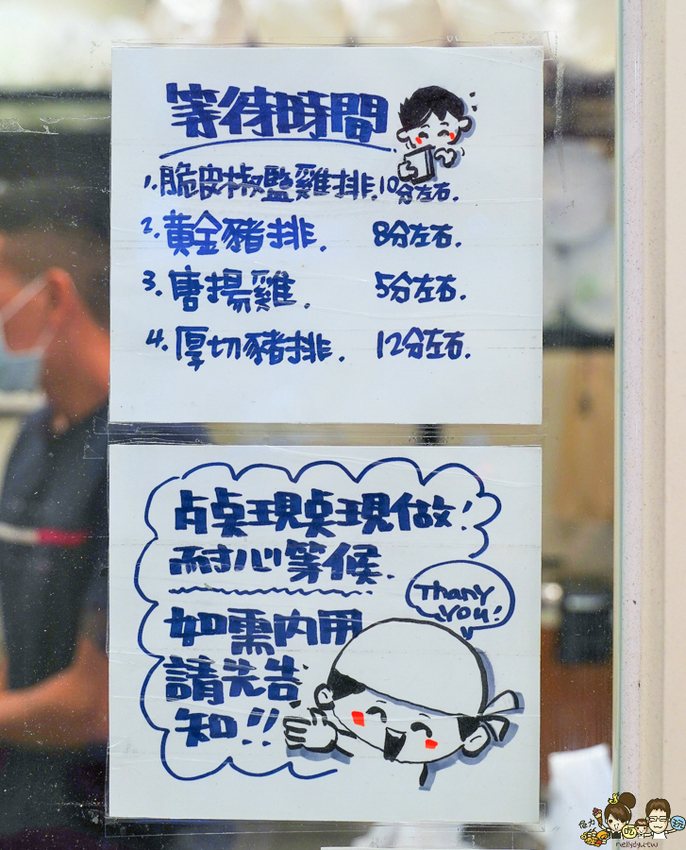 等待時間
1.脆皮椒鹽雞排.10分左右.
2.黃金豬排. 8分左右.
3.唐揚雞. 5分左右.
4.厚切豬排. 12分左右.
占桌現桌現做!
耐心等候.
Thank you!
如需內用
請先告
知!!
nellydyu.tw